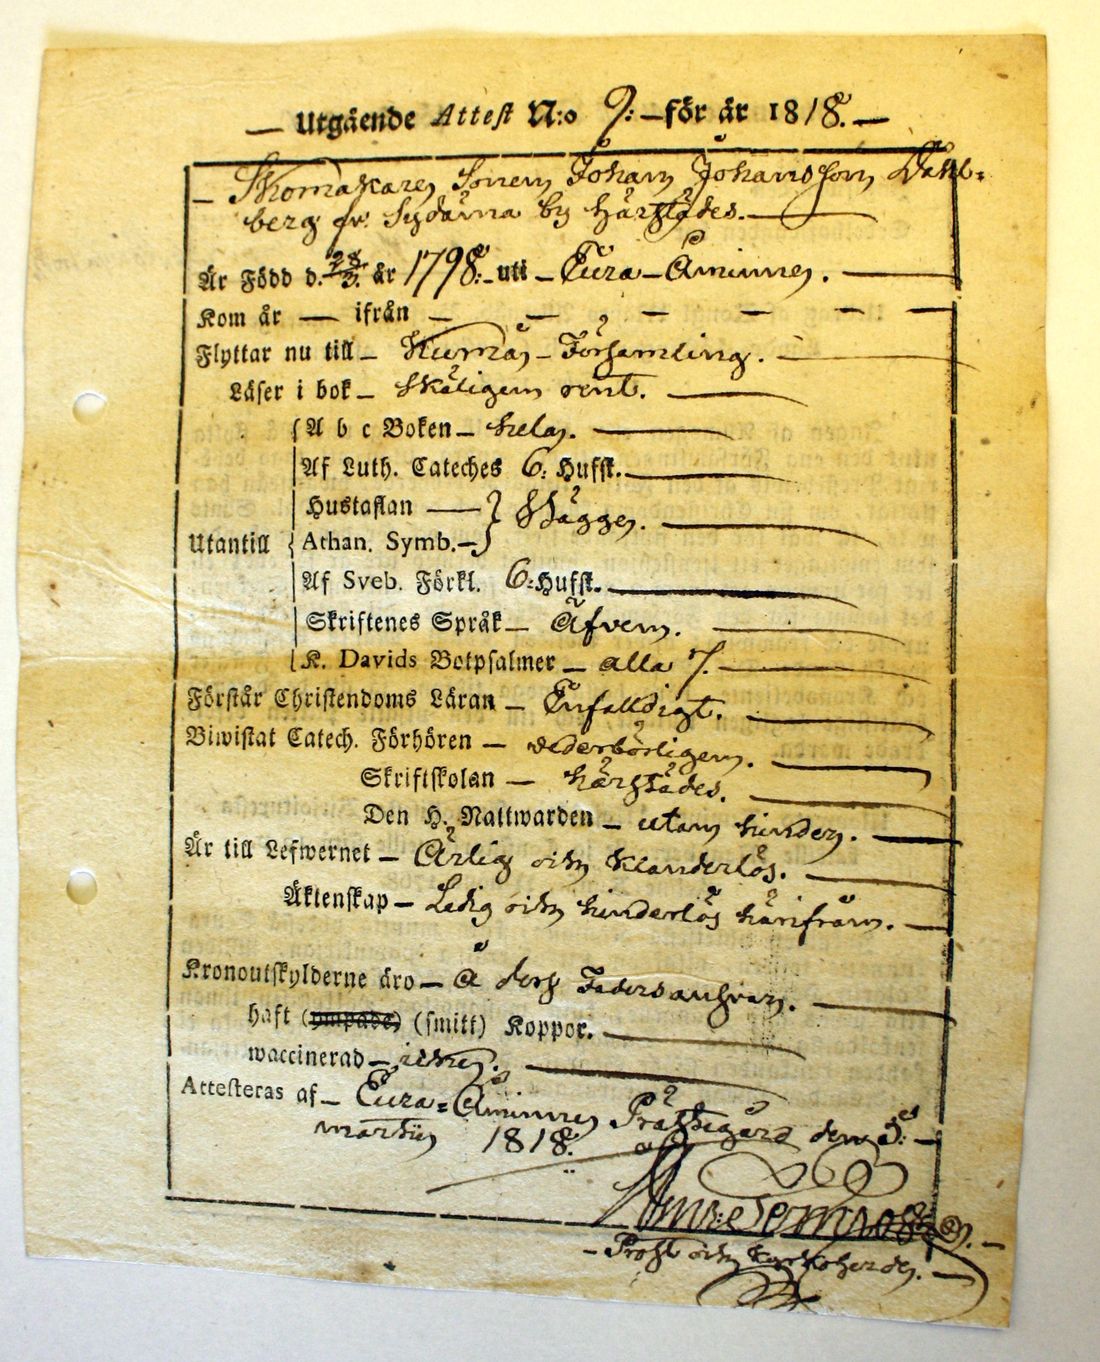 — Utgående Attest N:o 9: — för år 1818. —
— Skomakare Sonen Johan Johansson Dahl=
berg fr. Sydänma by härstädes. —
Är Född d. 28/3. år 1798: uti — Eura-Åminne. —
Kom år — ifrån — — — — — —
Flyttar nu till — Kumå — Församling. —
Läser i bok — skäligen rent. —
Abc Boken — hela. —
Af Luth. Cateches 6: Hufst. —
Hustaflan —
} Bägge. —
Utantill { Athan. Symb. —
Af Sveb. Förkl. 6: Hufst. —
Skriftenes Språk — Äfven. —
K. Davids Botpsalmer — alla 7. —
Förstår Christendoms Läran — Enfaldigt. —
Biwistat Catech. Förhören — vederbörligen. —
Skriftskolan — härstädes. —
Den H. Nattwarden — utan hinder. —
Är till Lefwernet — Ärlig och klanderlös. —
Äktenskap — Ledig och hinderlös härifrån. —
Kronoutskylderne äro — å dess Faders ansvar. —
haft (ympade) (smitt) Koppor. —
waccinerad — icke. —
Attesteras af — Eura=Åminne Prästegård den 5: —
martii 1818.
— Prost och Kyrkoherde. —